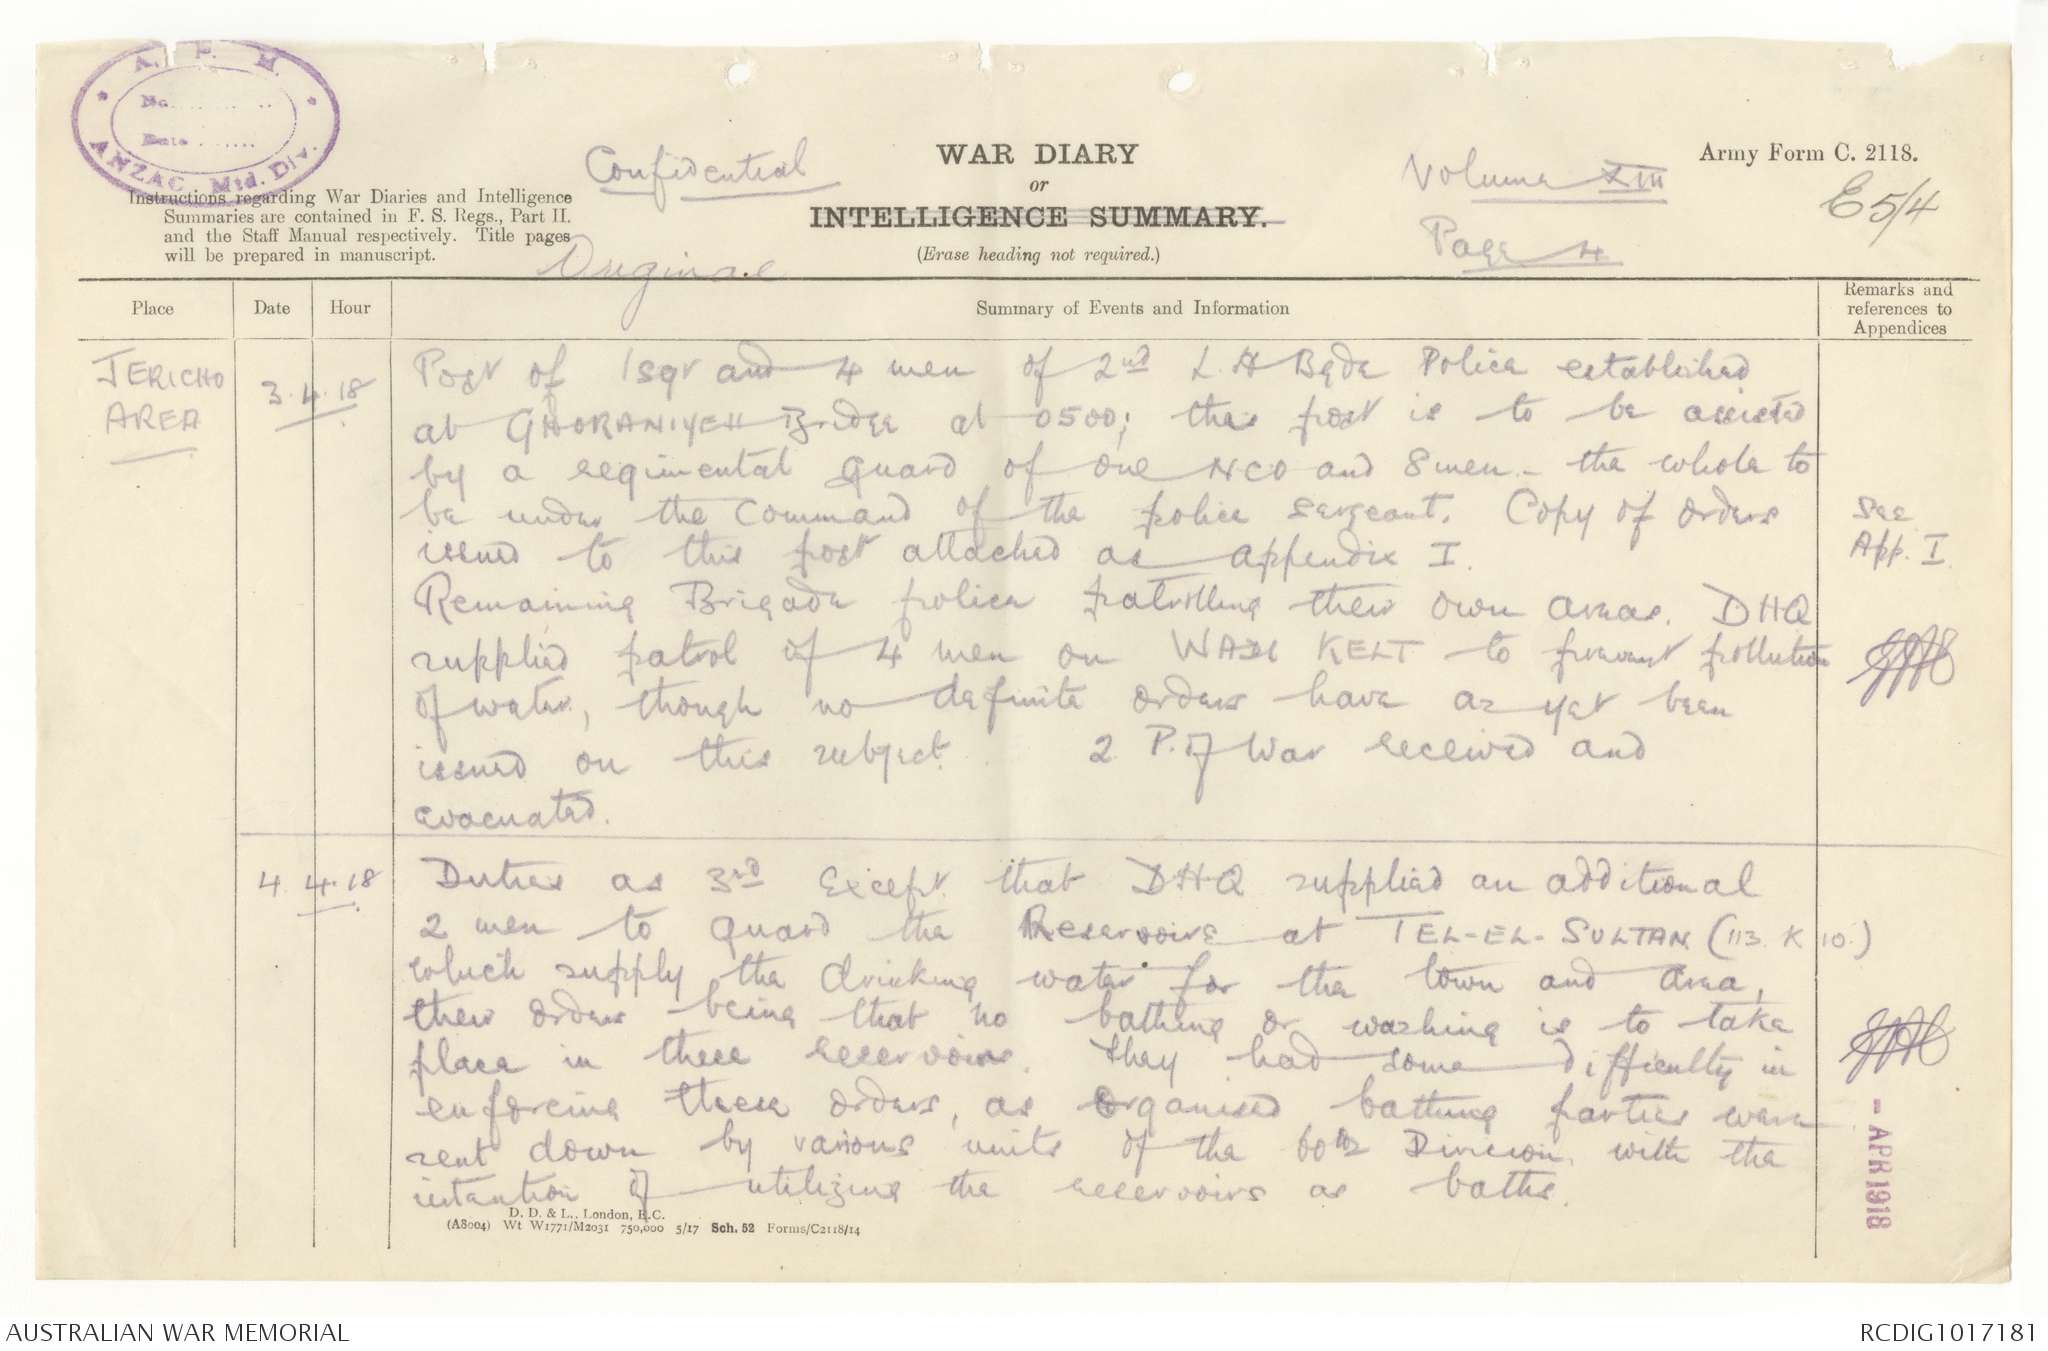 A. P. M.
No. ............
Date ........
ANZAC Mtd. Div.
Confidential
Original
WAR DIARY
or
INTELLIGENCE SUMMARY.
(Erase heading not required.)
Volume XIII
Page 4
Army Form C. 2118.
E 5/4
Instructions regarding War Diaries and Intelligence
Summaries are contained in F. S. Regs., Part II.
and the Staff Manual respectively. Title pages
will be prepared in manuscript.
Place
Date
Hour
Summary of Events and Information
Remarks and
references to
Appendices
JERICHO
AREA
3.4.18
Post of 1 sgt and 4 men of 2nd L.H Bgde Police established
at GHORANIYEH Bridge at 0500; this post is to be assisted
by a regimental guard of one NCO and 8 men - the whole to
be under the command of the police sergeant. Copy of orders
issued to this post attached as appendix I.
See
App. I.
Remaining Brigade police patrolling their own areas. DHQ
supplied patrol of 4 men on WADI KELT to prevent pollution
of water, though no definite orders have as yet been
issued on this subject. 2 P. of War received and
evacuated.
4.4.18
Duties as 3rd except that DHQ supplied an additional
2 men to guard the Reservoirs at TEL-EL-SULTAN (113. K 10.)
which supply the drinking water for the town and area,
their orders being that no bathing or washing is to take
place in these reservoirs. They had some difficulty in
enforcing these orders, as organised bathing parties were
sent down by various units of the 60th Division, with the
intention of utilizing the reservoirs as baths.
- APR 1918
D. D. & L., London, E.C.
(A8004) Wt W1771/M2031 750,000 5/17 Sch. 52 Forms/C2118/14
AUSTRALIAN WAR MEMORIAL
RCDIG1017181